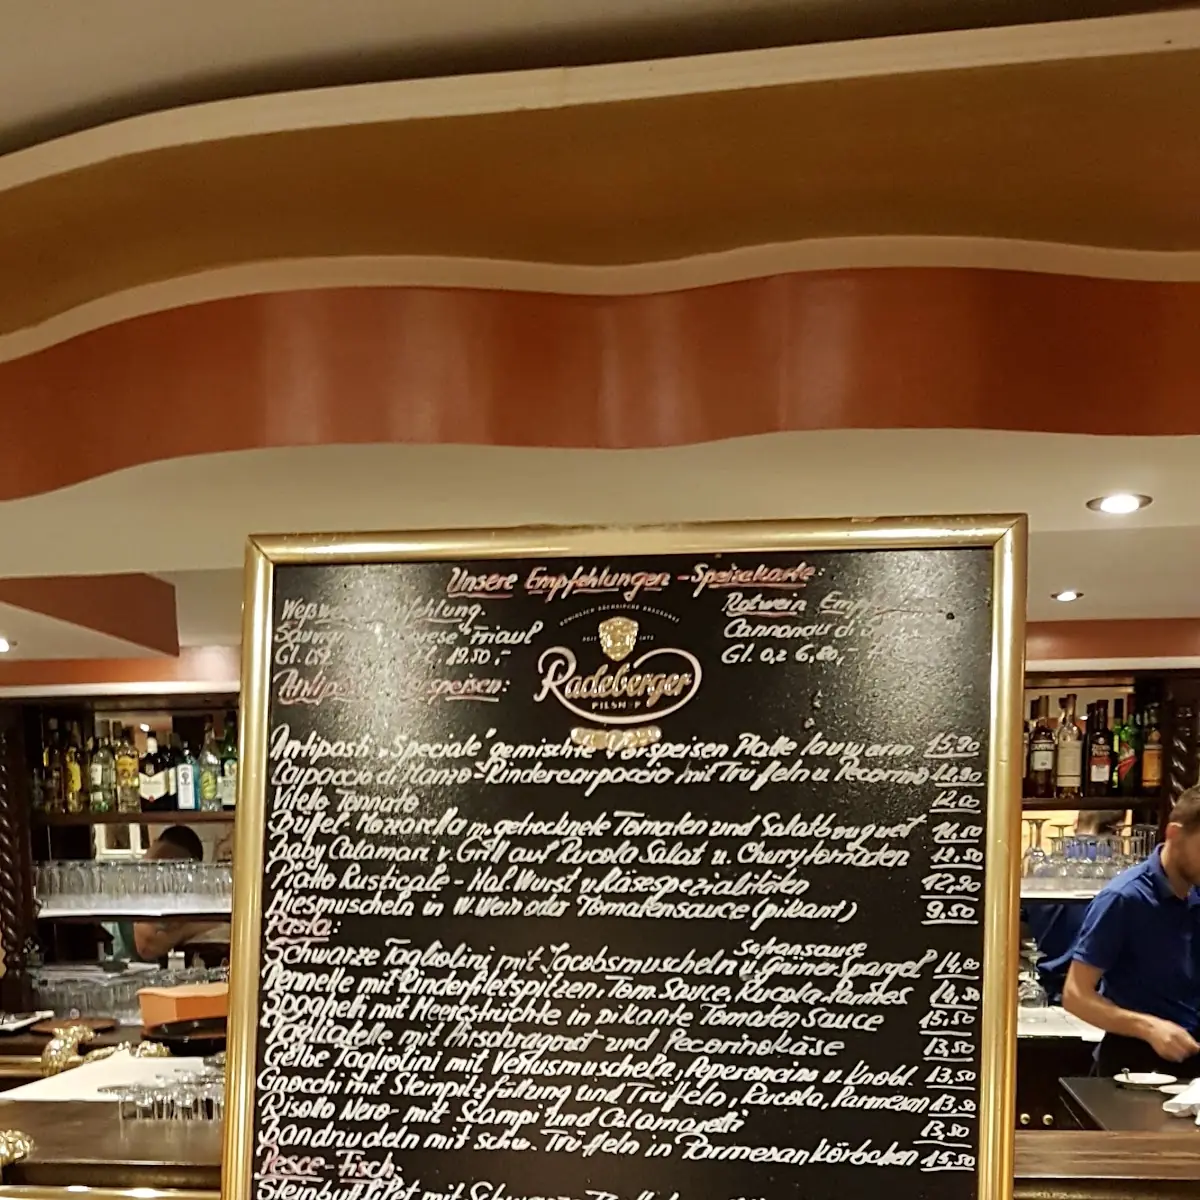 Unsere Empfehlungen - Speisekarte:
Rotwein
Cannonau di
Gl. 0,2 6,80,-
Friaul
19.50,-
KÖNIGLICH SÄCHSISCHE BRAUKUNST
SEIT 1872
Radeberger
PILSNER
Antipasti „Speciale" gemischte Vorspeisen Platte lauwarm 15,90
Carpaccio di Manzo - Rindercarpaccio mit Trüffeln u. Pecorino 12,90
Vitello Tonnato 12,00
Büffel Mozzarella m. getrocknete Tomaten und Salatbouquet 11,50
Baby Calamari v. Grill auf Rucola Salat u. Cherrytomaten 12,50
Piatto Rusticale - Hal. Wurst u. Käsespezialitäten 12,90
Miesmuscheln in W. Wein oder Tomatensauce (pikant) 9,50
Pasta:
Safransauce
Schwarze Tagliolini mit Jacobsmuscheln u. Grüner Spargel 14,80
Pennelle mit Rinderfiletspitzen, Tom. Sauce, Rucola, Parmes 14,50
Spaghetti mit Meeresfrüchte in pikante Tomaten Sauce 15,50
Tagliatelle mit Hirschragout und Pecorinokäse 13,50
Gelbe Tagliolini mit Venusmuscheln, Peperoncino u. Knobl. 13,50
Gnocchi mit Steinpilzfüllung und Trüffeln, Rucola, Parmesan 13,50
Risotto Nero - mit Scampi und Calamaretti 13,50
Bandnudeln mit schw. Trüffeln in Parmesankörbchen 15,50
Pesce - Fisch:
Steinbuttfilet mit Schwarze